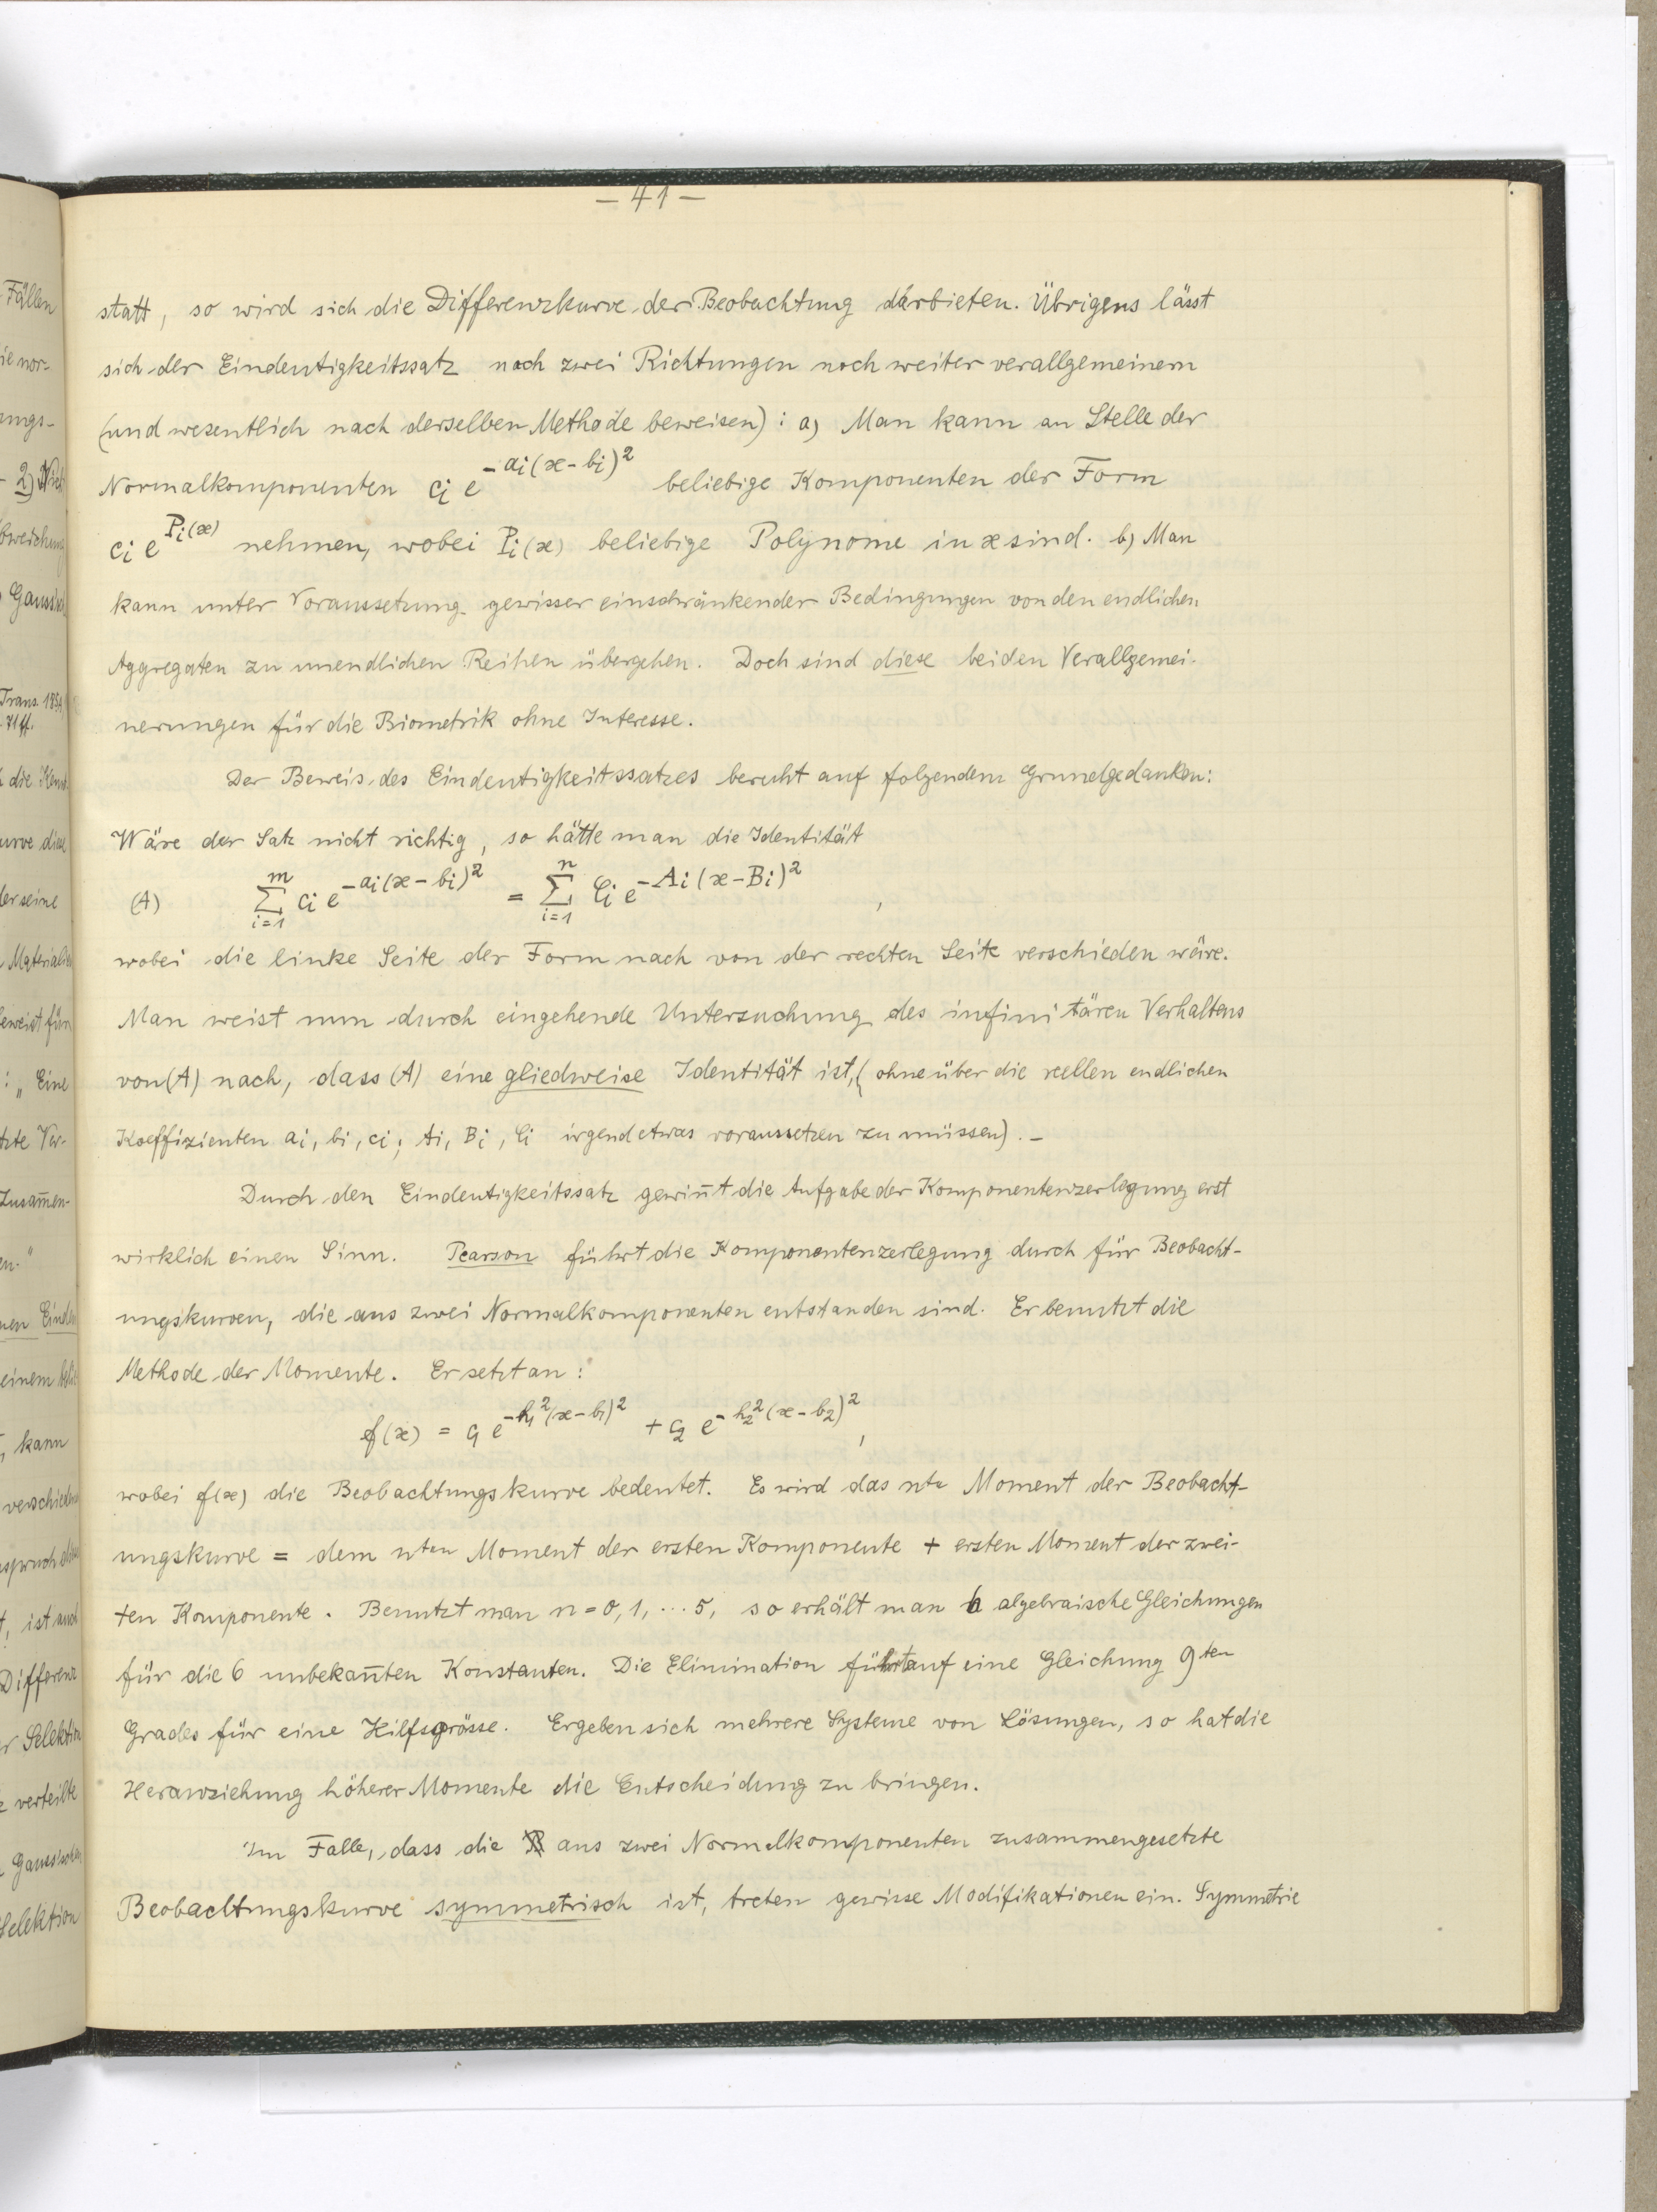 — 41 —
statt, so wird sich die Differenzkurve der Beobachtung darbieten. Übrigens lässt
sich der Eindeutigkeitssatz nach zwei Richtungen noch weiter verallgemeinern
(und wesentlich nach derselben Methode beweisen): a) Man kann an Stelle der
Normalkomponenten cᵢ e^{-aᵢ(x-bᵢ)²} beliebige Komponenten der Form
cᵢ e^{Pᵢ(x)} nehmen, wobei Pᵢ(x) beliebige Polynome in x sind. b) Man
kann unter Voraussetzung gewisser einschränkender Bedingungen von den endlichen
Aggregaten zu unendlichen Reihen übergehen. Doch sind diese beiden Verallgemei-
nerungen für die Biometrik ohne Interesse.
Der Beweis des Eindeutigkeitssatzes beruht auf folgendem Grundgedanken:
Wäre der Satz nicht richtig, so hätte man die Identität
(A) ∑_{i=1}^{m} cᵢ e^{-aᵢ(x-bᵢ)²} = ∑_{i=1}^{n} Cᵢ e^{-Aᵢ(x-Bᵢ)²} ,
wobei die linke Seite der Form nach von der rechten Seite verschieden wäre.
Man weist nun durch eingehende Untersuchung des infinitären Verhaltens
von (A) nach, dass (A) eine gliedweise Identität ist, (ohne über die reellen endlichen
Koeffizienten aᵢ, bᵢ, cᵢ; Aᵢ, Bᵢ, Cᵢ irgend etwas voraussetzen zu müssen). –
Durch den Eindeutigkeitssatz gewin̄t die Aufgabe der Komponentenzerlegung erst
wirklich einen Sinn. Pearson führt die Komponentenzerlegung durch für Beobacht-
ungskurven, die aus zwei Normalkomponenten entstanden sind. Er benutzt die
Methode der Momente. Er setzt an:
f(x) = c₁ e^{-h₁²(x-b₁)²} + c₂ e^{-h₂²(x-b₂)²},
wobei f(x) die Beobachtungskurve bedeutet. Es wird das nte Moment der Beobacht-
ungskurve = dem nten Moment der ersten Komponente + ersten Moment der zwei-
ten Komponente. Benutzt man n = 0, 1, ... 5, so erhält man 6 algebraische Gleichungen
für die 6 unbekan̄ten Konstanten. Die Elimination führt auf eine Gleichung 9ten
Grades für eine Hilfsgrösse. Ergeben sich mehrere Systeme von Lösungen, so hat die
Heranziehung höherer Momente die Entscheidung zu bringen.
Im Falle, dass die aus zwei Normalkomponenten zusammengesetzte
Beobachtungskurve symmetrisch ist, treten gewisse Modifikationen ein. Symmetrie